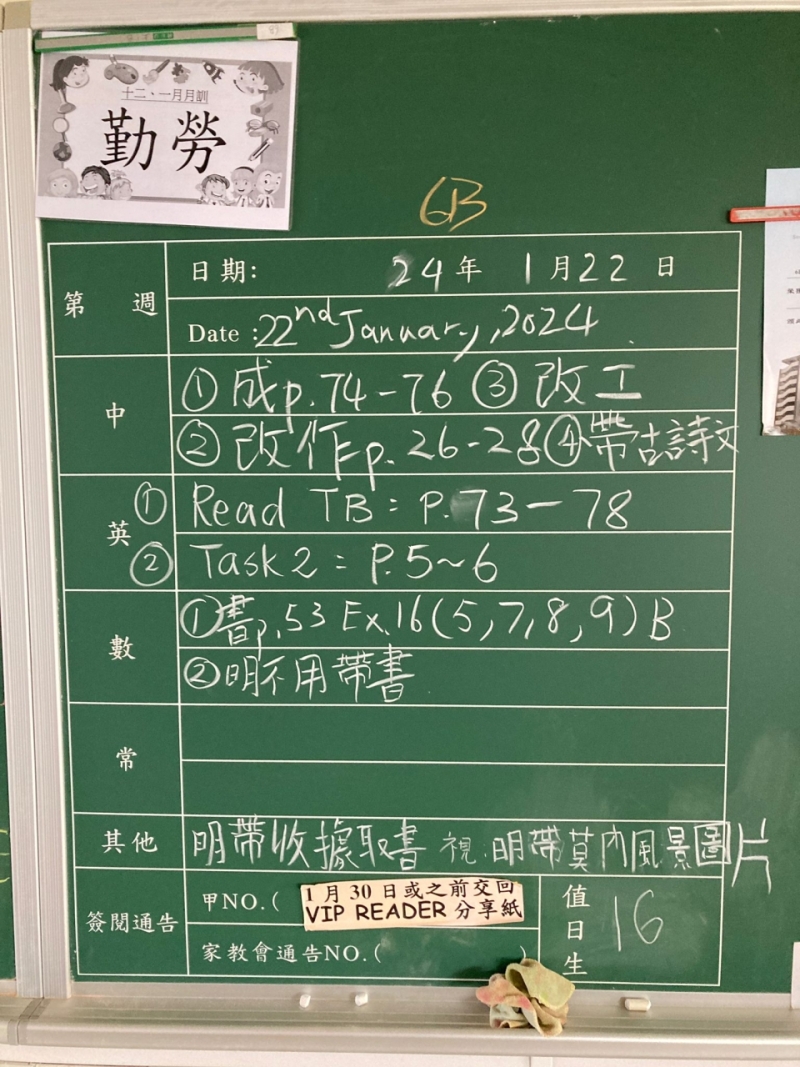 十二、一月月訓
勤勞
6B
第 週
日期: 24年 1月22日
Date :22nd January, 2024
中
① 成p.74-76 ③ 改工
② 改作p.26-28 ④帶古詩文
英
① Read TB = P.73-78
② Task 2 = P.5~6
數
①書p.53 Ex.16(5,7,8,9) B
②明不用帶書
常
其他
明帶收據取書 視.明帶莫內風景圖片
簽閱通告
甲NO.(
1月30日或之前交回
VIP READER 分享紙
家教會通告NO.( )
值日生
16